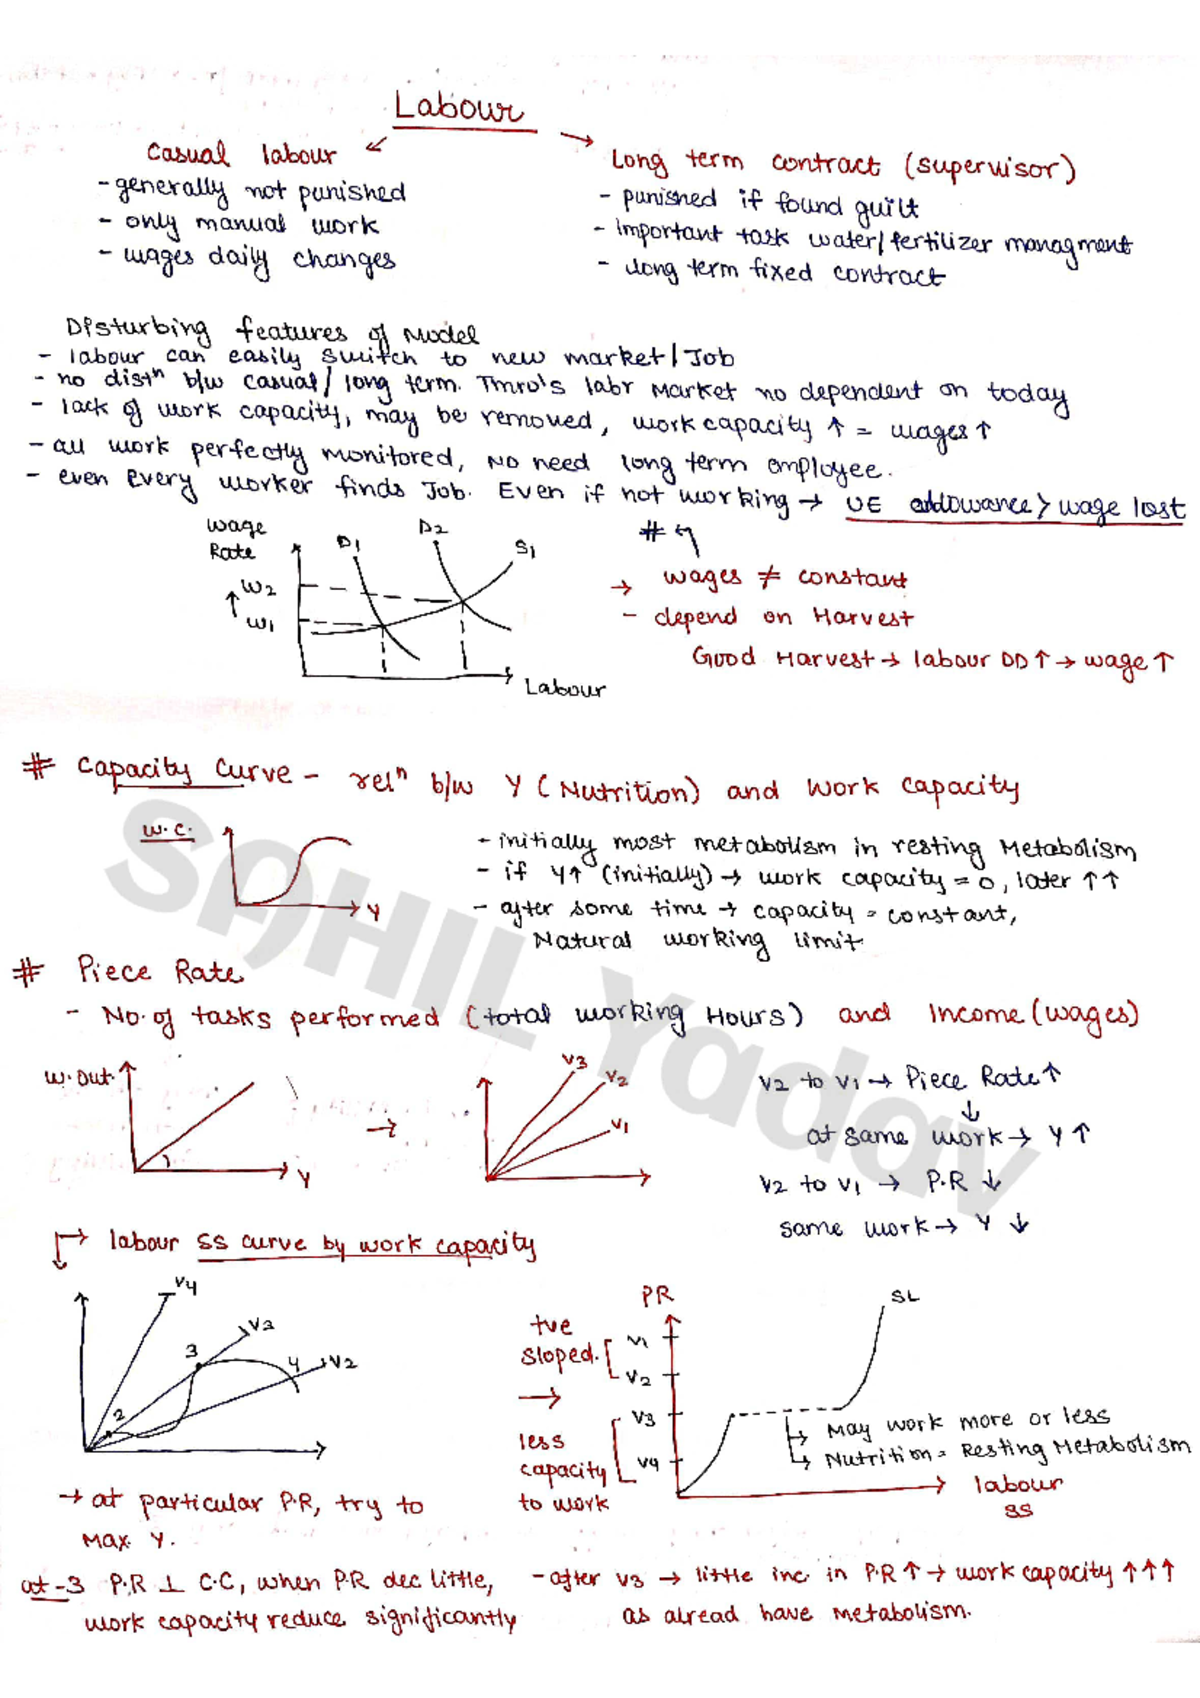 Labour
Casual labour
- generally not punished
- only manual work
- wages daily changes
Long term contract (supervisor)
- punished if found guilt
- Important task water/fertilizer managment
- long term fixed contract
Disturbing features of Model
- labour can easily switch to new market/Job
- no distⁿ b/w casual/long term. Tmro's labr Market no dependent on today
- lack of work capacity, may be removed, work capacity ↑ = wages ↑
- all work perfectly monitored, No need long term employee.
- even Every worker finds Job. Even if not working → UE allowance > wage lost
Wage Rate
W2
W1
D1
D2
S1
Labour
→ wages ≠ constant
- depend on Harvest
Good Harvest → labour DD ↑ → wage ↑
# Capacity Curve - relⁿ b/w Y (Nutrition) and Work Capacity
W.C.
Y
- initially most metabolism in resting Metabolism
- if Y↑ (initially) → work capacity = 0, later ↑↑
- after some time → capacity = constant,
Natural working limit
# Piece Rate
- No. of tasks performed (total working Hours) and Income (wages)
W.Out
Y
→
V3
V2
V1
V2 to V1 → Piece Rate ↑
↓
at same work → Y ↑
V2 to V1 → P.R ↓
same work → Y ↓
→ labour SS curve by work capacity
V4
V3
V2
2
3
4
→ at particular P.R, try to
Max Y.
+ve
Sloped.
→
less
capacity
to work
PR
V1
V2
V3
V4
SL
→ May work more or less
→ Nutrition = Resting Metabolism
labour
SS
at -3 P.R ⊥ C.C, when P.R dec little,
work capacity reduce significantly
- after V3 → little inc. in P.R ↑ → work capacity ↑↑↑
as alread have Metabolism.
SAHIL Yadav